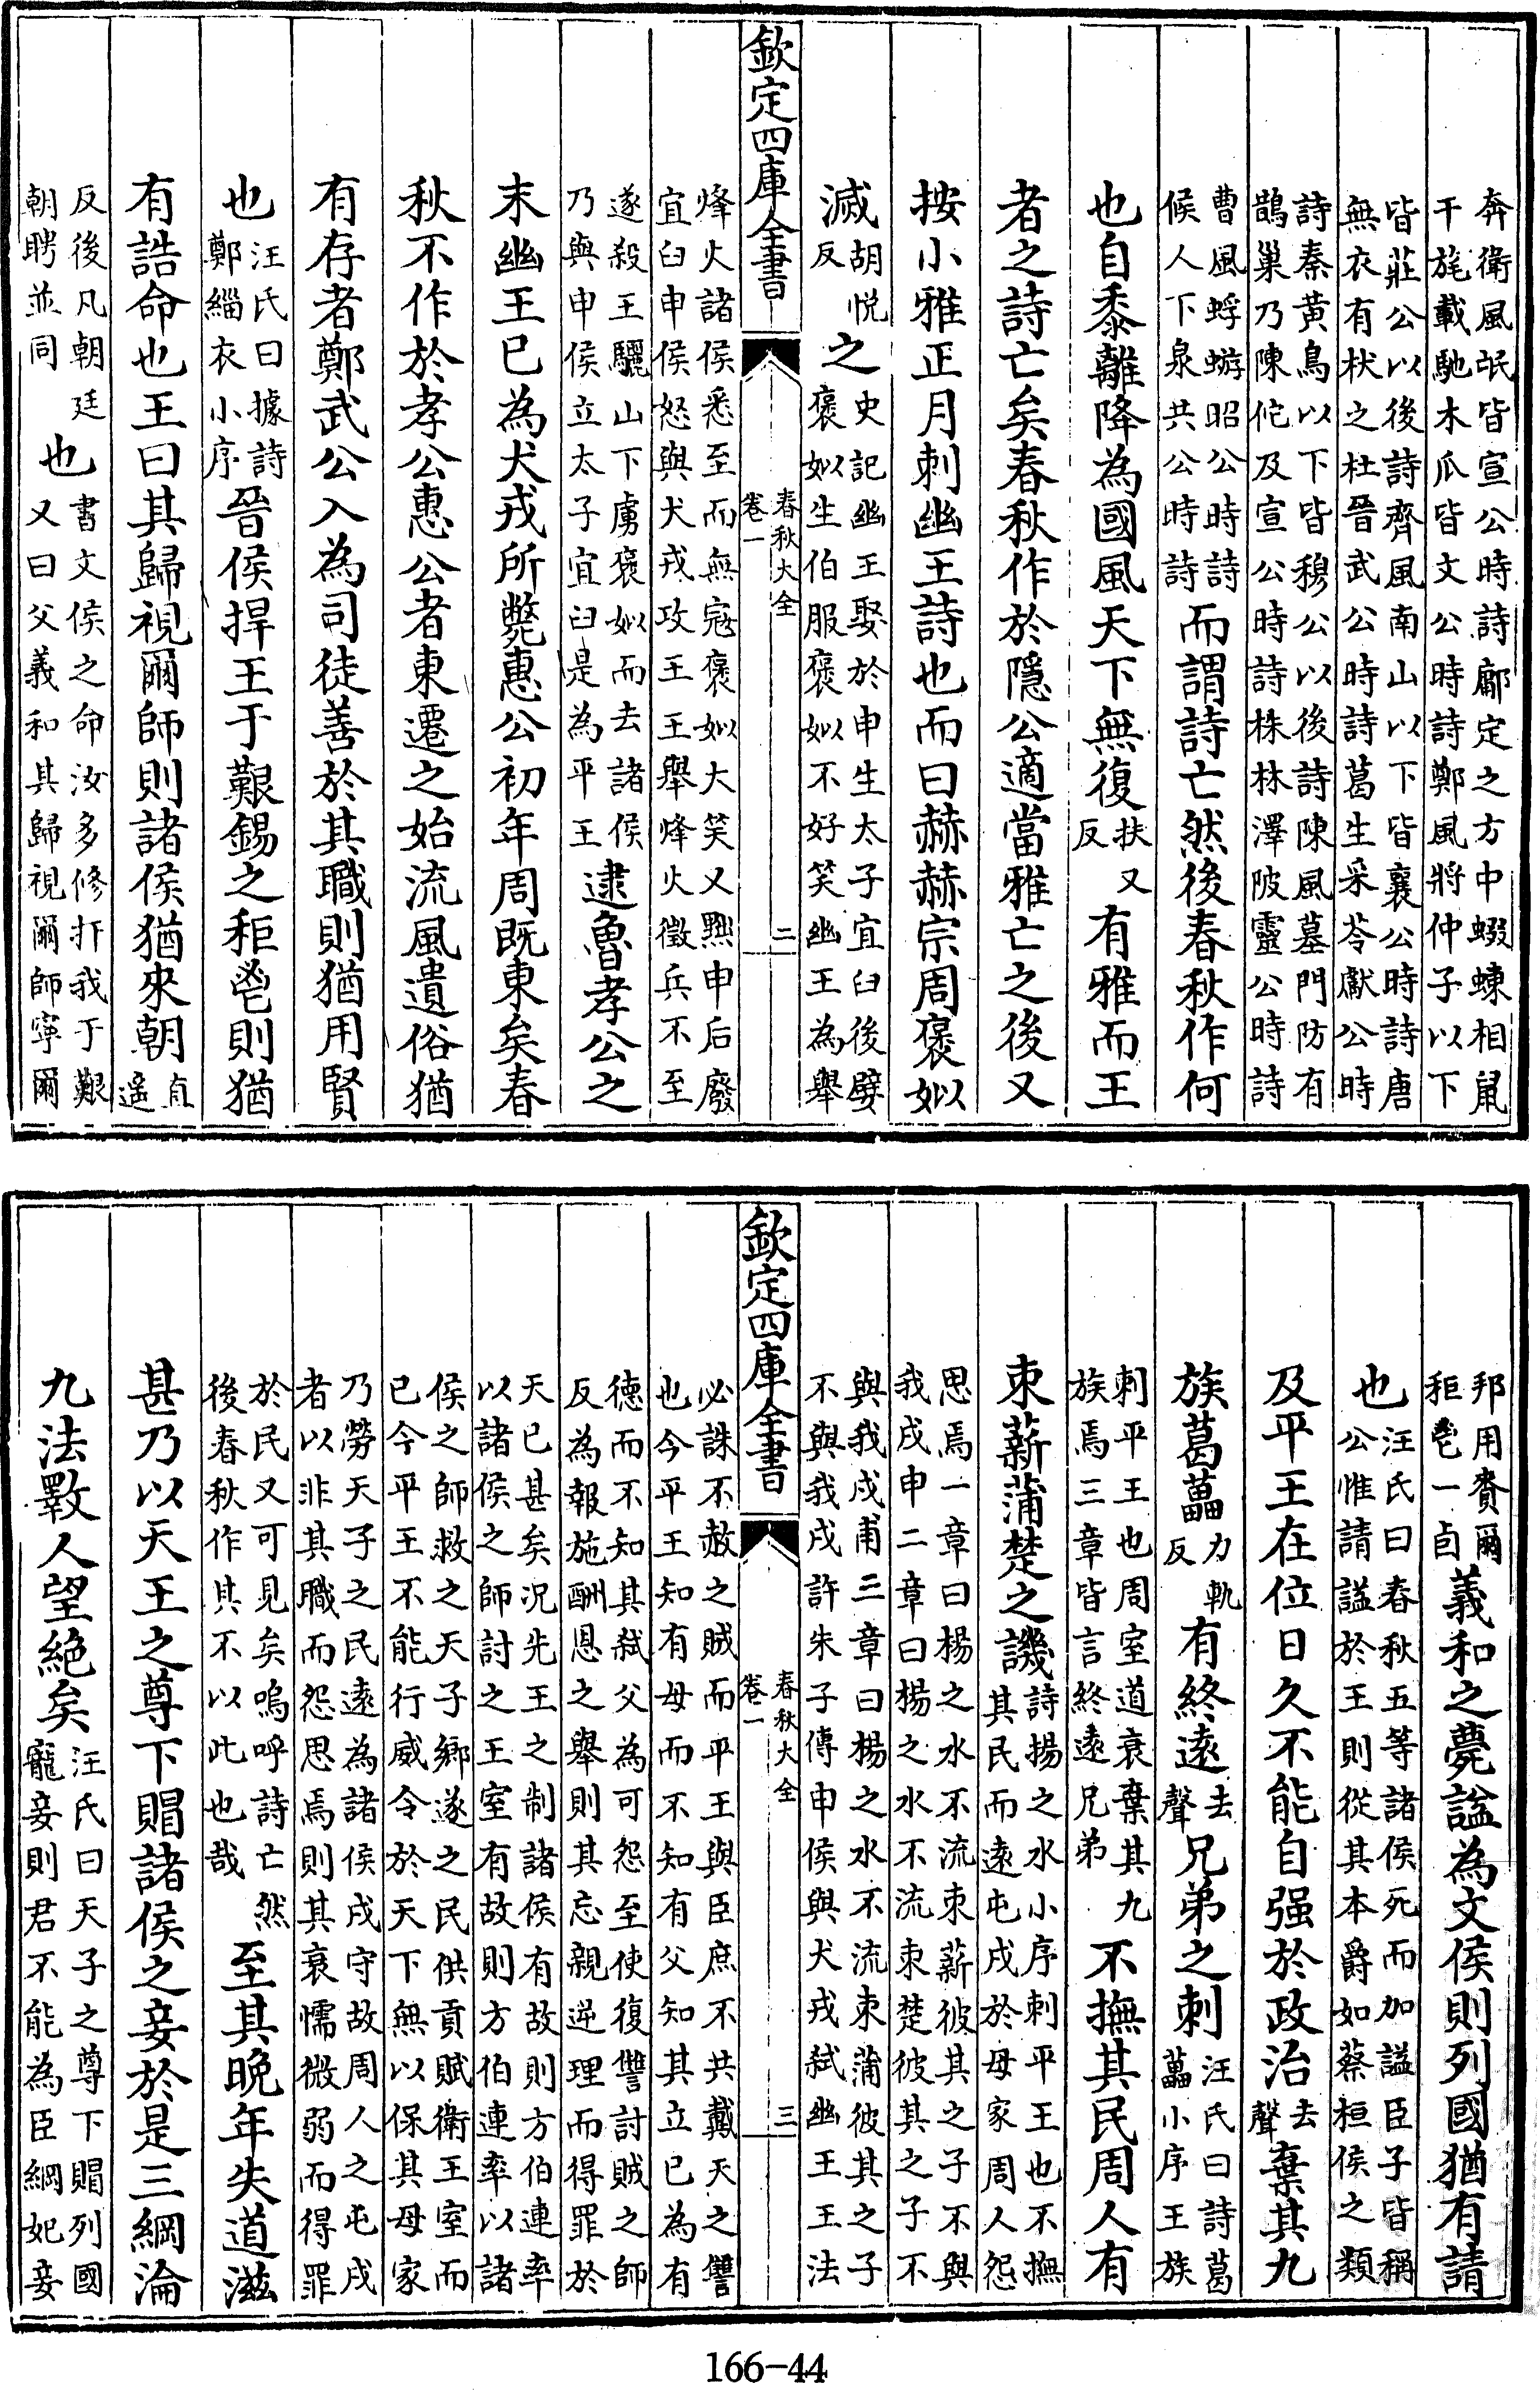 奔衛風氓皆宣公時詩鄘定之方中蝃蝀相鼠
干旄載馳木瓜皆文公時詩鄭風將仲子以下
皆莊公以後詩齊風南山以下皆襄公時詩唐
無衣有杕之杜晉武公時詩葛生采苓獻公時
詩秦黄鳥以下皆穆公以後詩陳風墓門防有
鵲巢乃陳佗及宣公時詩株林澤陂靈公時詩
曹風蜉蝣昭公時詩
候人下泉共公時詩
而謂詩亡然後春秋作何
也自黍離降為國風天下無復扶又反有雅而王
者之詩亡矣春秋作於隱公適當雅亡之後又
按小雅正月刺幽王詩也而曰赫赫宗周褒姒
滅胡悦反之史記幽王娶於申生太子宜臼後嬖
褒姒生伯服褒姒不好笑幽王為舉
欽定四庫全書
春秋大全
卷一
二
烽火諸侯悉至而無寇褒姒大笑又黜申后廢
宜臼申侯怒與犬戎攻王王舉烽火徵兵不至
遂殺王驪山下虜褒姒而去諸侯
乃與申侯立太子宜臼是為平王
逮魯孝公之
末幽王已為犬戎所斃惠公初年周既東矣春
秋不作於孝公惠公者東遷之始流風遺俗猶
有存者鄭武公入為司徒善於其職則猶用賢
也汪氏曰據詩鄭緇衣小序晉侯捍王于艱錫之秬鬯則猶
有誥命也王曰其歸視爾師則諸侯猶來朝直遥
反後凡朝廷
朝聘並同
也書文侯之命汝多修扞我于艱
又曰父義和其歸視爾師寧爾
邦用賚爾
秬鬯一卣
義和之薨諡為文侯則列國猶有請
也汪氏曰春秋五等諸侯死而加諡臣子皆稱
公惟請諡於王則從其本爵如蔡桓侯之類
及平王在位日久不能自强於政治去聲棄其九
族葛藟力軌反有終遠去聲兄弟之刺汪氏曰詩葛
藟小序王族
刺平王也周室道衰棄其九
族焉三章皆言終遠兄弟
不撫其民周人有
束薪蒲楚之譏詩揚之水小序刺平王也不撫
其民而遠屯戍於母家周人怨
思焉一章曰楊之水不流束薪彼其之子不與
我戍申二章曰揚之水不流束楚彼其之子不
與我戍甫三章曰楊之水不流束蒲彼其之子
不與我戍許朱子傳申侯與犬戎弑幽王王法
欽定四庫全書
春秋大全
卷一
三
必誅不赦之賊而平王與臣庶不共戴天之讐
也今平王知有母而不知有父知其立已為有
德而不知其弑父為可怨至使復讐討賊之師
反為報施酬恩之舉則其忘親逆理而得罪於
天已甚矣况先王之制諸侯有故則方伯連率
以諸侯之師討之王室有故則方伯連率以諸
侯之師救之天子鄉遂之民供貢賦衛王室而
已今平王不能行威令於天下無以保其母家
乃勞天子之民遠為諸侯戍守故周人之屯戍
者以非其職而怨思焉則其衰懦微弱而得罪
於民又可見矣嗚呼詩亡然
後春秋作其不以此也哉
至其晚年失道滋
甚乃以天王之尊下賵諸侯之妾於是三綱淪
九法斁人望絶矣汪氏曰天子之尊下賵列國
寵妾則君不能為臣綱妃妾
166-44